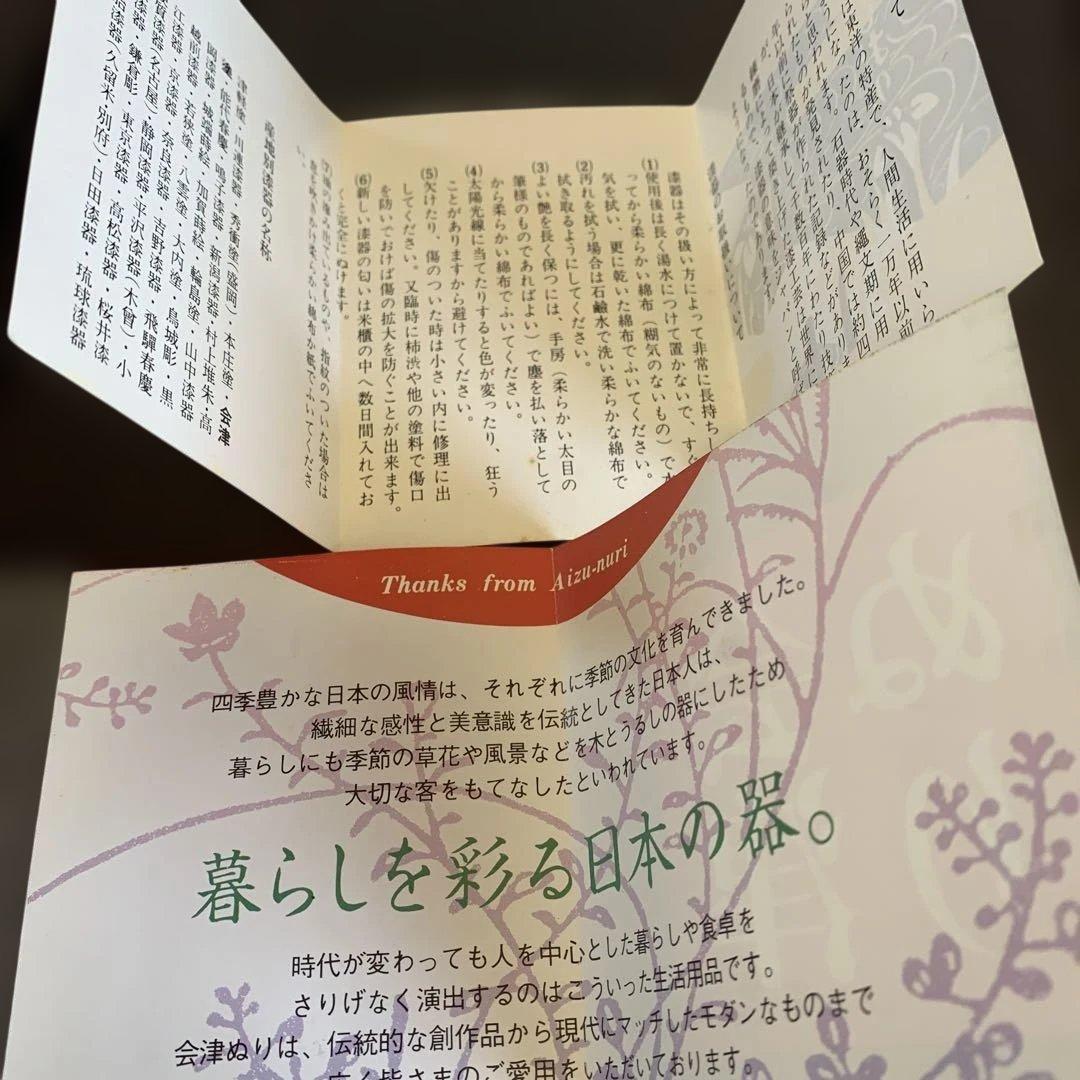 て
は東洋の特産で、人間生活に用いら
になったのは、おそらく一万年以前
と思われます。石器時代や縄文期に用
られたものが発見されたり、中国では約四
漆器はその扱い方によって非常に長持ちし
⑴使用後は長く湯水につけて置かないで、すぐ
ってから柔らかい綿布（糊気のないもの）で水
気を拭い、更に乾いた綿布でふいてください。
⑵汚れを拭う場合は石鹼水で洗い柔らかな綿布で
拭き取るようにしてください。
⑶よい艶を長く保つには、手房（柔らかい太目の
筆様のものであればよい）で塵を払い落として
から柔らかい綿布でふいてください。
⑷太陽光線に当てたりすると色が変ったり、狂う
ことがありますから避けてください。
⑸欠けたり、傷のついた時は小さい内に修理に出
してください。又臨時に柿渋や他の塗料で傷口
を防いでおけば傷の拡大を防ぐことが出来ます。
⑹新しい漆器の匂いは米櫃の中へ数日間入れてお
くと完全にぬけます。
指紋のついた場合は
柔らかい綿布か紙でふいてくださ
産地別漆器の名称
津軽塗・川連漆器・秀衡塗（盛岡）・本庄塗・会津
塗・能代春慶・鳴子漆器・新潟漆器・村上堆朱・高
岡漆器・城端蒔絵・加賀蒔絵・輪島塗・山中漆器
越前漆器・若狭塗・八雲塗・大内塗・鳥城彫・黒
江漆器・京漆器・奈良漆器・吉野漆器・飛騨春慶
漆器（名古屋）・静岡漆器・平沢漆器（木曾）・小
漆器・鎌倉彫・東京漆器・高松漆器・桜井漆
（久留米・別府）・日田漆器・琉球漆器
Thanks from Aizu-nuri
四季豊かな日本の風情は、それぞれに季節の文化を育んできました。
繊細な感性と美意識を伝統としてきた日本人は、
暮らしにも季節の草花や風景などを木とうるしの器にしたため
大切な客をもてなしたといわれています。
暮らしを彩る日本の器。
時代が変わっても人を中心とした暮らしや食卓を
さりげなく演出するのはこういった生活用品です。
会津ぬりは、伝統的な創作品から現代にマッチしたモダンなものまで
広く皆さまのご愛用をいただいております。